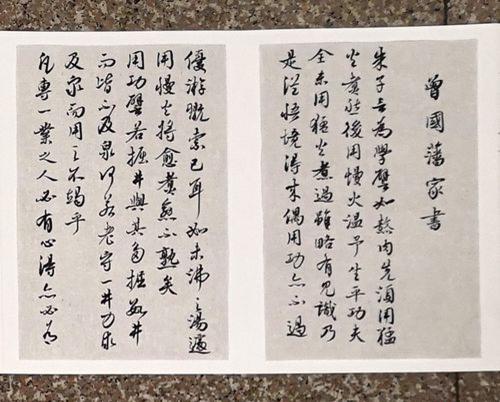 曾國藩家書
朱子言為學譬如熬肉先須用猛
火煮然後用慢火溫予生平功夫
全未用猛火煮過雖略有見識乃
是從悟境得來偶用功亦不過
優游玩索已耳如未沸之湯遽
用慢火將愈煮愈不熟矣
用功譬若掘井與其多掘數井
而皆不及泉何若老守一井力求
及泉而用之不竭乎
凡專一業之人必有心得亦必有